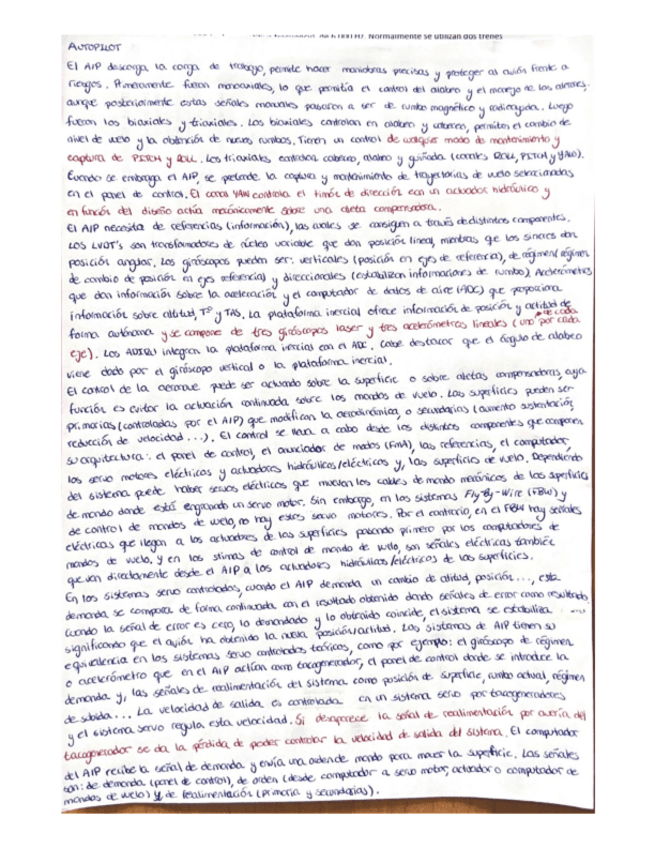 Normalmente se utilizan dos trenes
AUTOPILOT
El AIP descarga la carga de trabajo, permite hacer maniobras precisas y proteger al avión frente a
riesgos. Primeramente fueron monoaxiales, lo que permitía el control del alabeo y el manejo de los alerones,
aunque posteriormente estas señales manuales pasaron a ser de rumbo magnético y radioayuda. Luego
fueron los biaxiales y triaxiales. Los biaxiales controlan en alabeo y cabeceo, permiten el cambio de
nivel de vuelo y la obtención de nuevos rumbos. Tienen un control de cualquier modo de mantenimiento y
captura de PITCH y ROLL. Los triaxiales controlan cabeceo, alabeo y guiñada (canales ROLL, PITCH y YAW).
Cuando se embraga el AIP, se pretende la captura y mantenimiento de trayectorias de vuelo seleccionadas
en el panel de control. El canal YAW controla el timón de dirección con un actuador hidráulico y
en función del diseño actúa mecánicamente sobre una aleta compensadora.
El AIP necesita de referencias (información), las cuales se consiguen a través de distintos componentes.
Los LVDT's son transformadores de núcleo variable que dan posición lineal, mientras que los sincros dan
posición angular. Los giróscopos pueden ser: verticales (posición en ejes de referencia), de régimen (régimen
de cambio de posición en ejes referencia) y direccionales (estabilizan informaciones de rumbo). Acelerómetros
que dan información sobre la aceleración y el computador de datos de aire (ADC) que proporciona
información sobre altitud, Tª y TAS. La plataforma inercial ofrece información de posición y actitud de
forma autónoma y se compone de tres giróscopos laser y tres acelerómetros lineales (uno por cada
eje). Los ADIRU integran la plataforma inercial con el ADC. Cabe destacar que el ángulo de alabeo
viene dado por el giróscopo vertical o la plataforma inercial.
El control de la aeronave puede ser actuando sobre la superficie o sobre aletas compensadoras, cuya
función es evitar la actuación continuada sobre los mandos de vuelo. Las superficies pueden ser
primarias (controladas por el AIP) que modifican la aerodinámica, o secundarias (aumento sustentación,
reducción de velocidad...). El control se lleva a cabo desde los distintos componentes que componen
su arquitectura: el panel de control, el anunciador de modos (FMA), las referencias, el computador,
los servo motores eléctricos y actuadores hidráulicos/eléctricos y, las superficies de vuelo. Dependiendo
del sistema puede haber servos eléctricos que muevan los cables de mando mecánicos de las superficies
de mando donde está engranado un servo motor. Sin embargo, en los sistemas Fly-By-Wire (FBW) y
de control de mandos de vuelo, no hay estos servo motores. Por el contrario, en el FBW hay señales
eléctricas que llegan a los actuadores de las superficies pasando primero por los computadores de
mandos de vuelo, y en los sitmas de control de mando de vuelo, son señales eléctricas también
que van directamente desde el AIP a los actuadores hidráulicos/eléctricos de las superficies.
En los sistemas servo controlados, cuando el AIP demanda un cambio de altitud, posición..., esta
demanda se compara de forma continuada con el resultado obtenido dando señales de error como resultado.
Cuando la señal de error es cero, lo demandado y lo obtenido coincide, el sistema se estabiliza
significando que el avión ha obtenido la nueva posición/actitud. Los sistemas de AIP tienen su
equivalencia en los sistemas servo controlados teóricos, como por ejemplo: el giróscopo de régimen
o acelerómetro que en el AIP actúan como tacogenerador, el panel de control donde se introduce la
demanda y, las señales de realimentación del sistema como posición de superficie, rumbo actual, régimen
de subida... La velocidad de salida es controlada en un sistema servo por tacogeneradores
y el sistema servo regula esta velocidad. Si desaparece la señal de realimentación por avería del
tacogenerador se da la pérdida de poder controlar la velocidad de salida del sistema. El computador
del AIP recibe la señal de demanda y envía una orden de mando para mover la superficie. Las señales
son: de demanda (panel de control), de orden (desde computador a servo motor, actuador o computador de
mandos de vuelo) y de realimentación (primaria y secundarias).